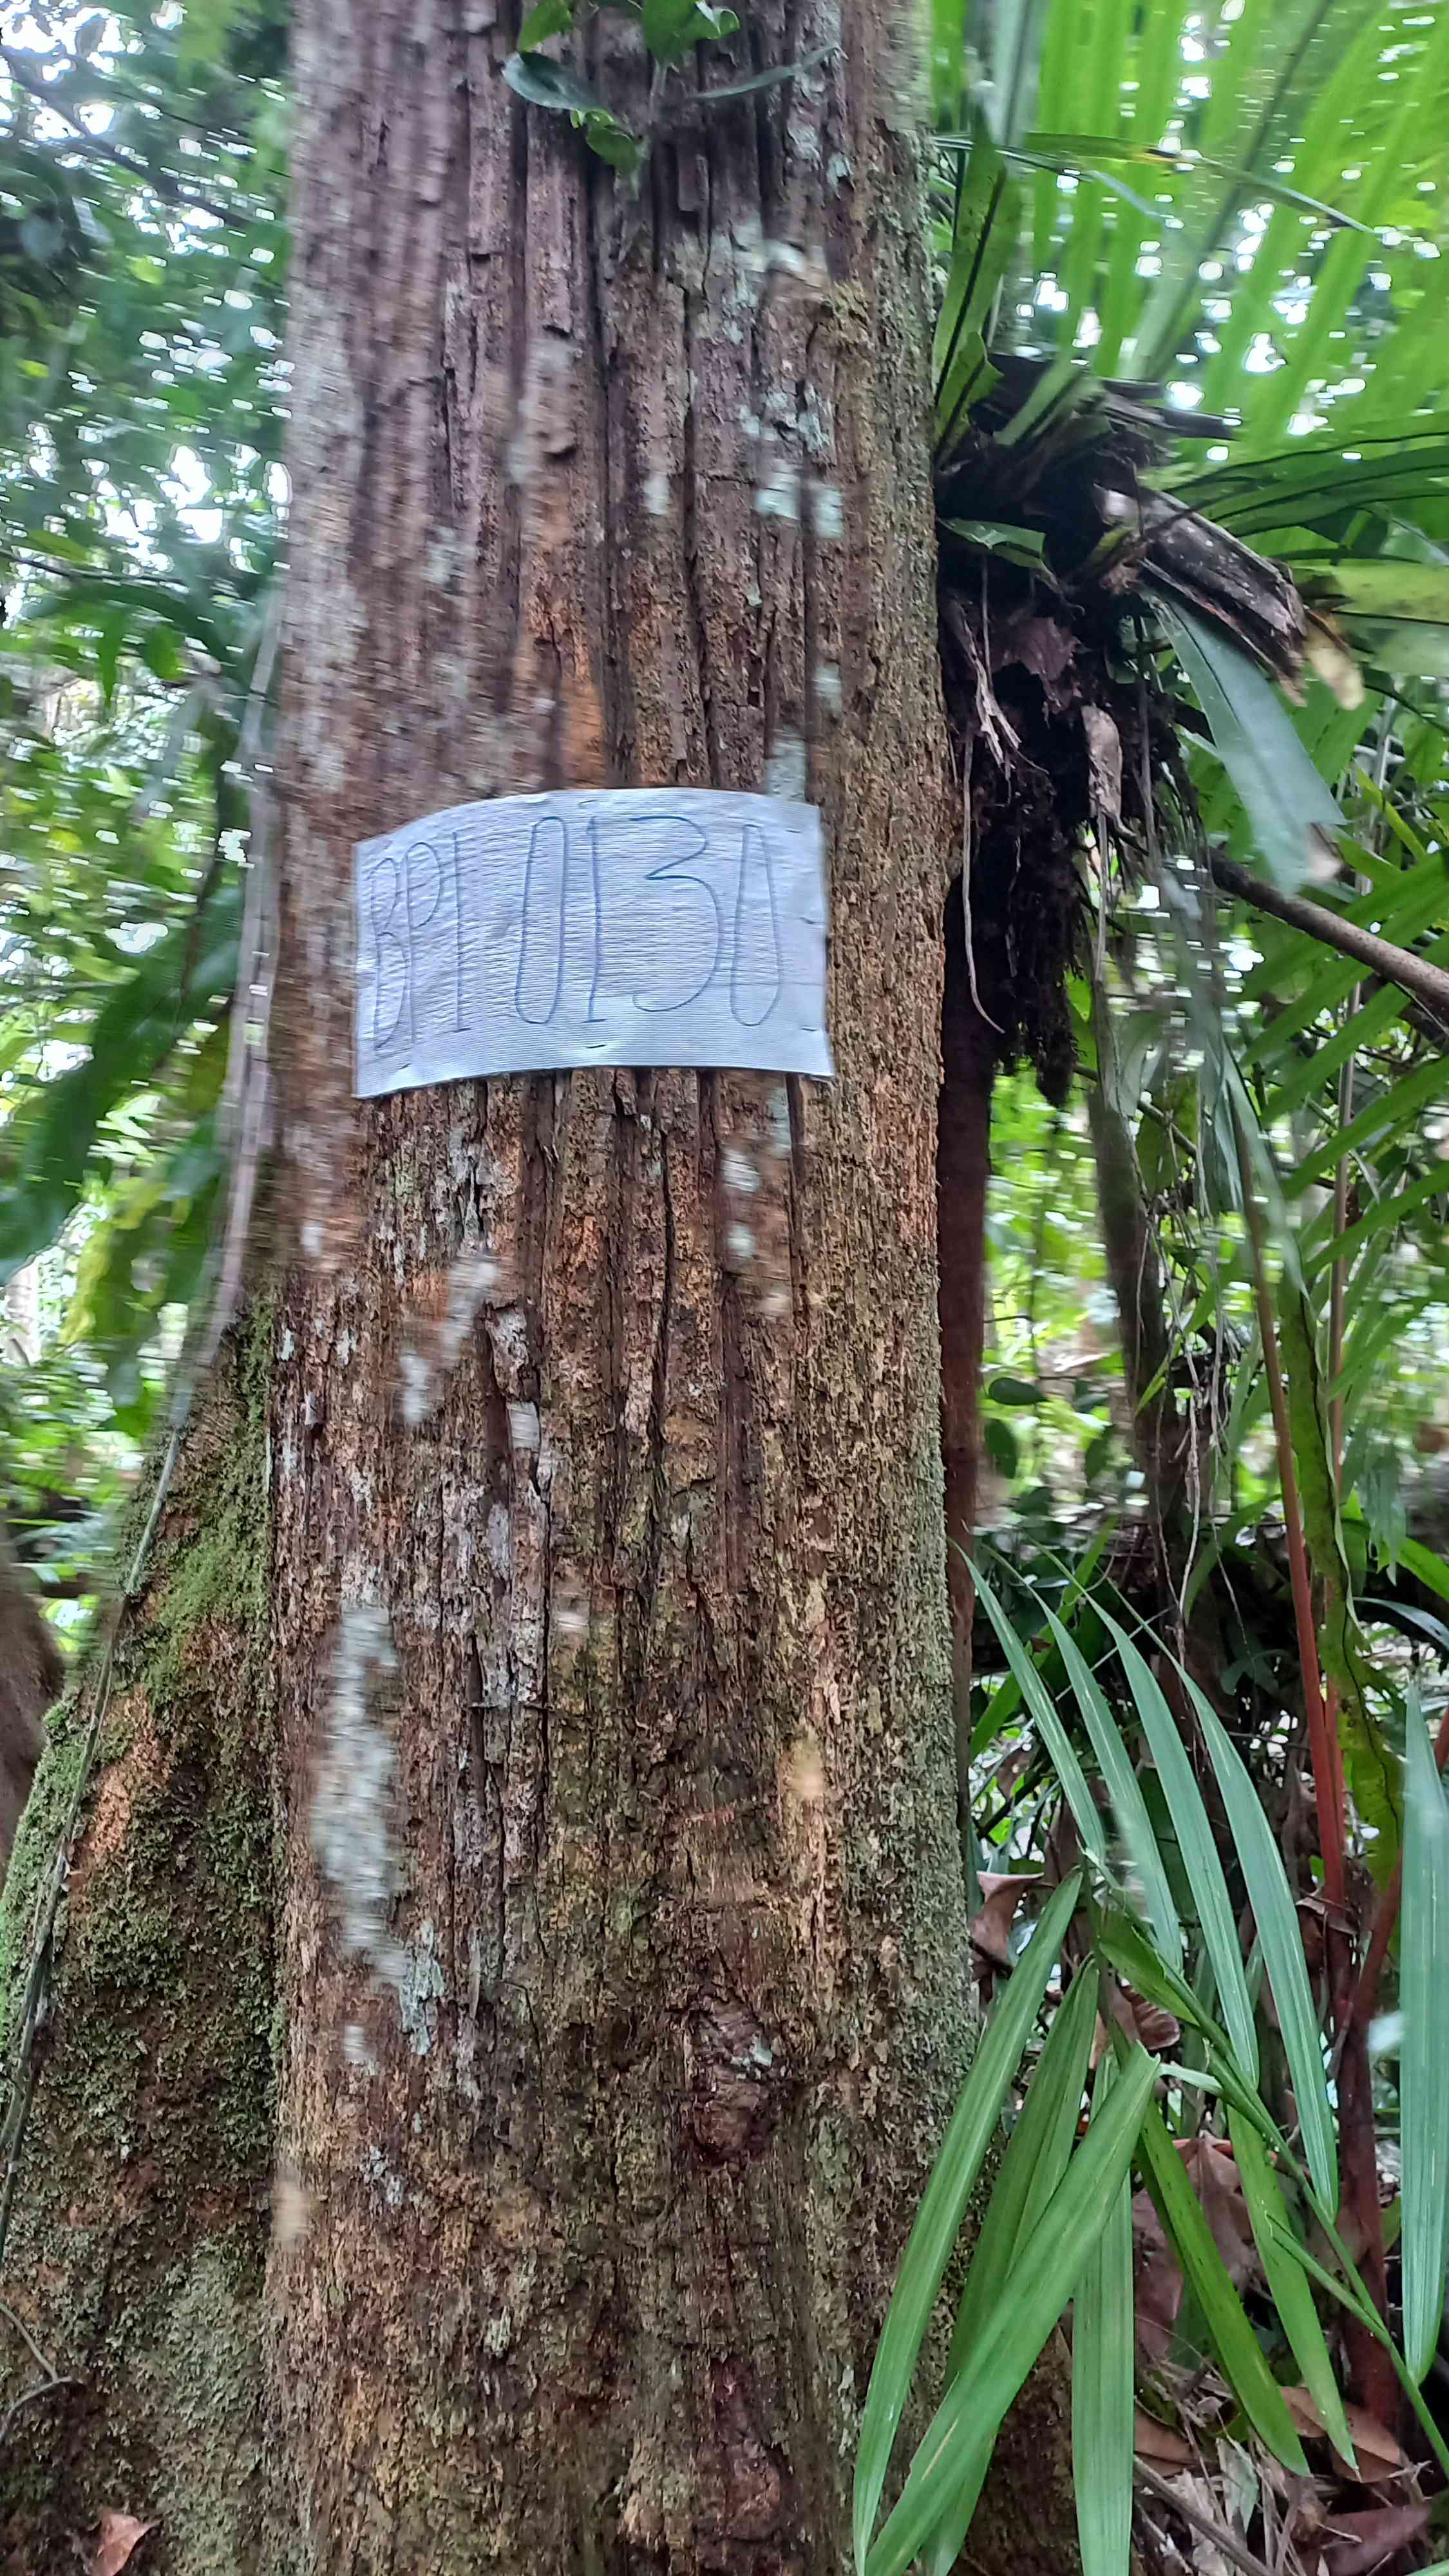 BPI 0130